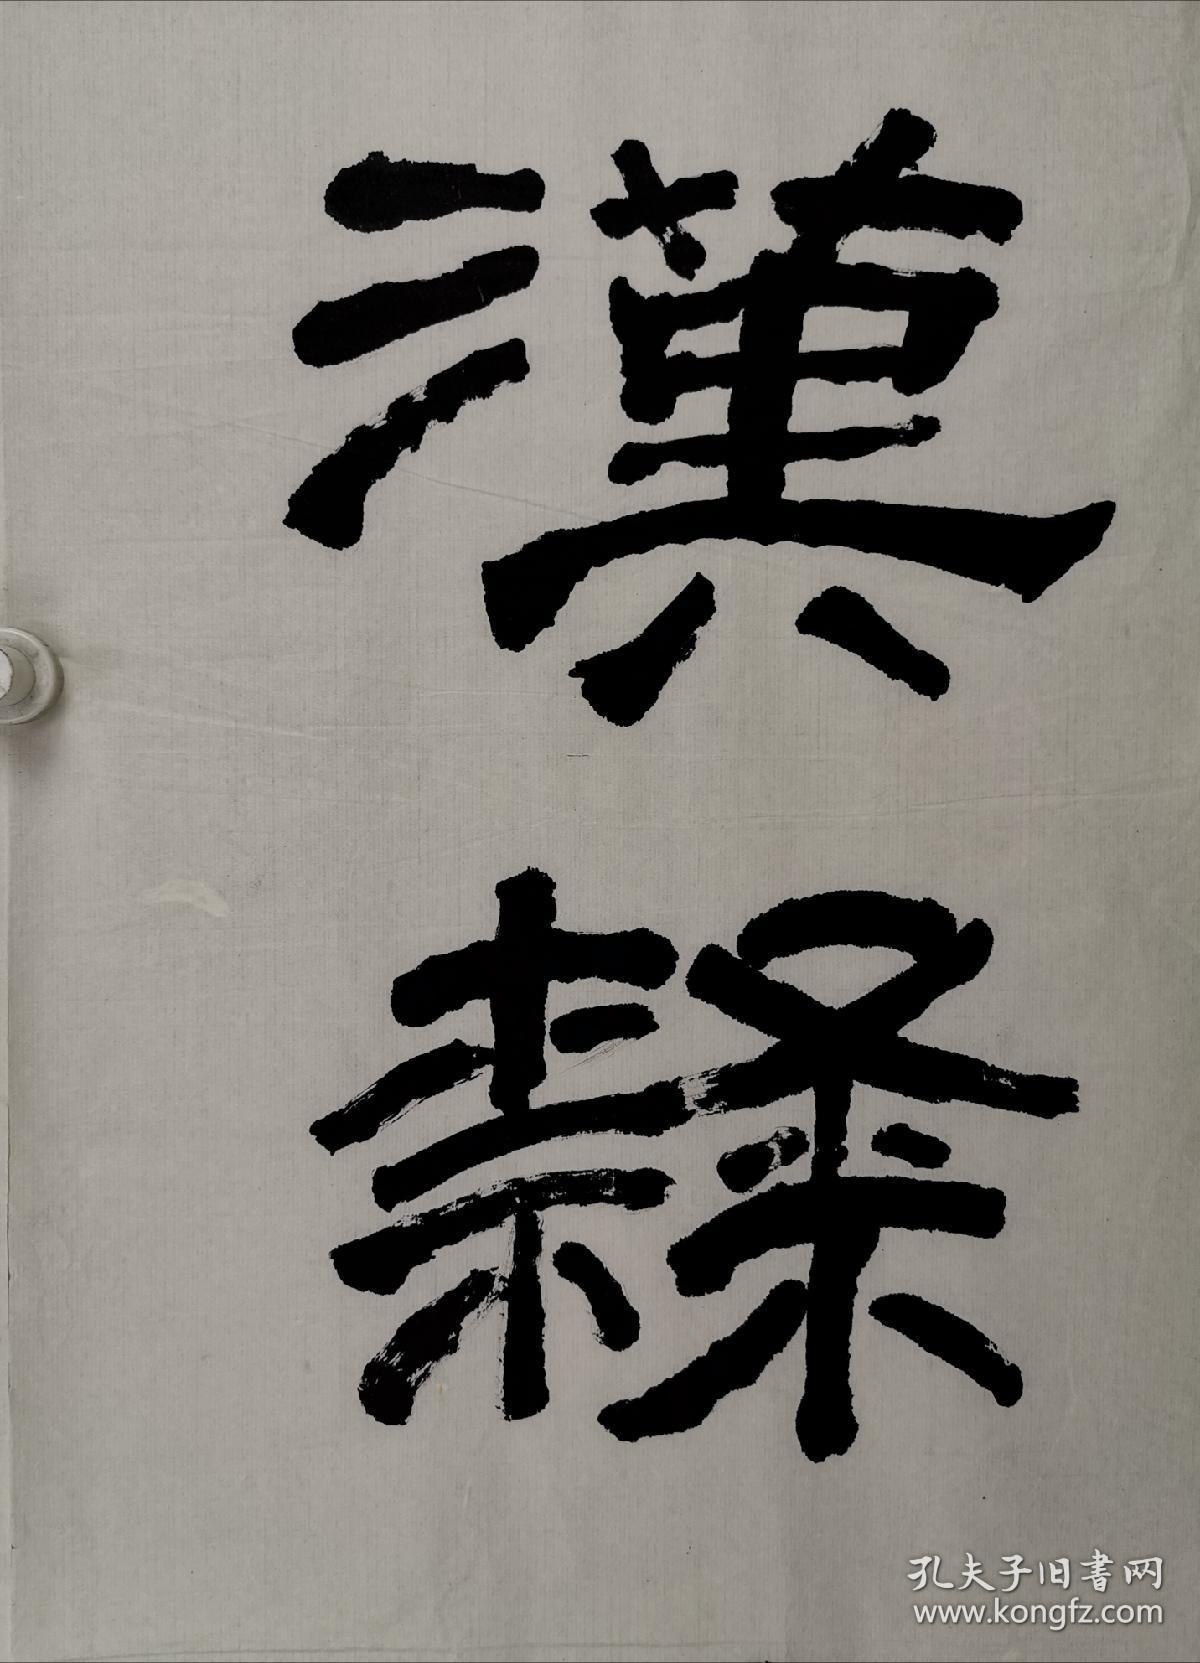 漢
隸
孔夫子旧書网
www.kongfz.com